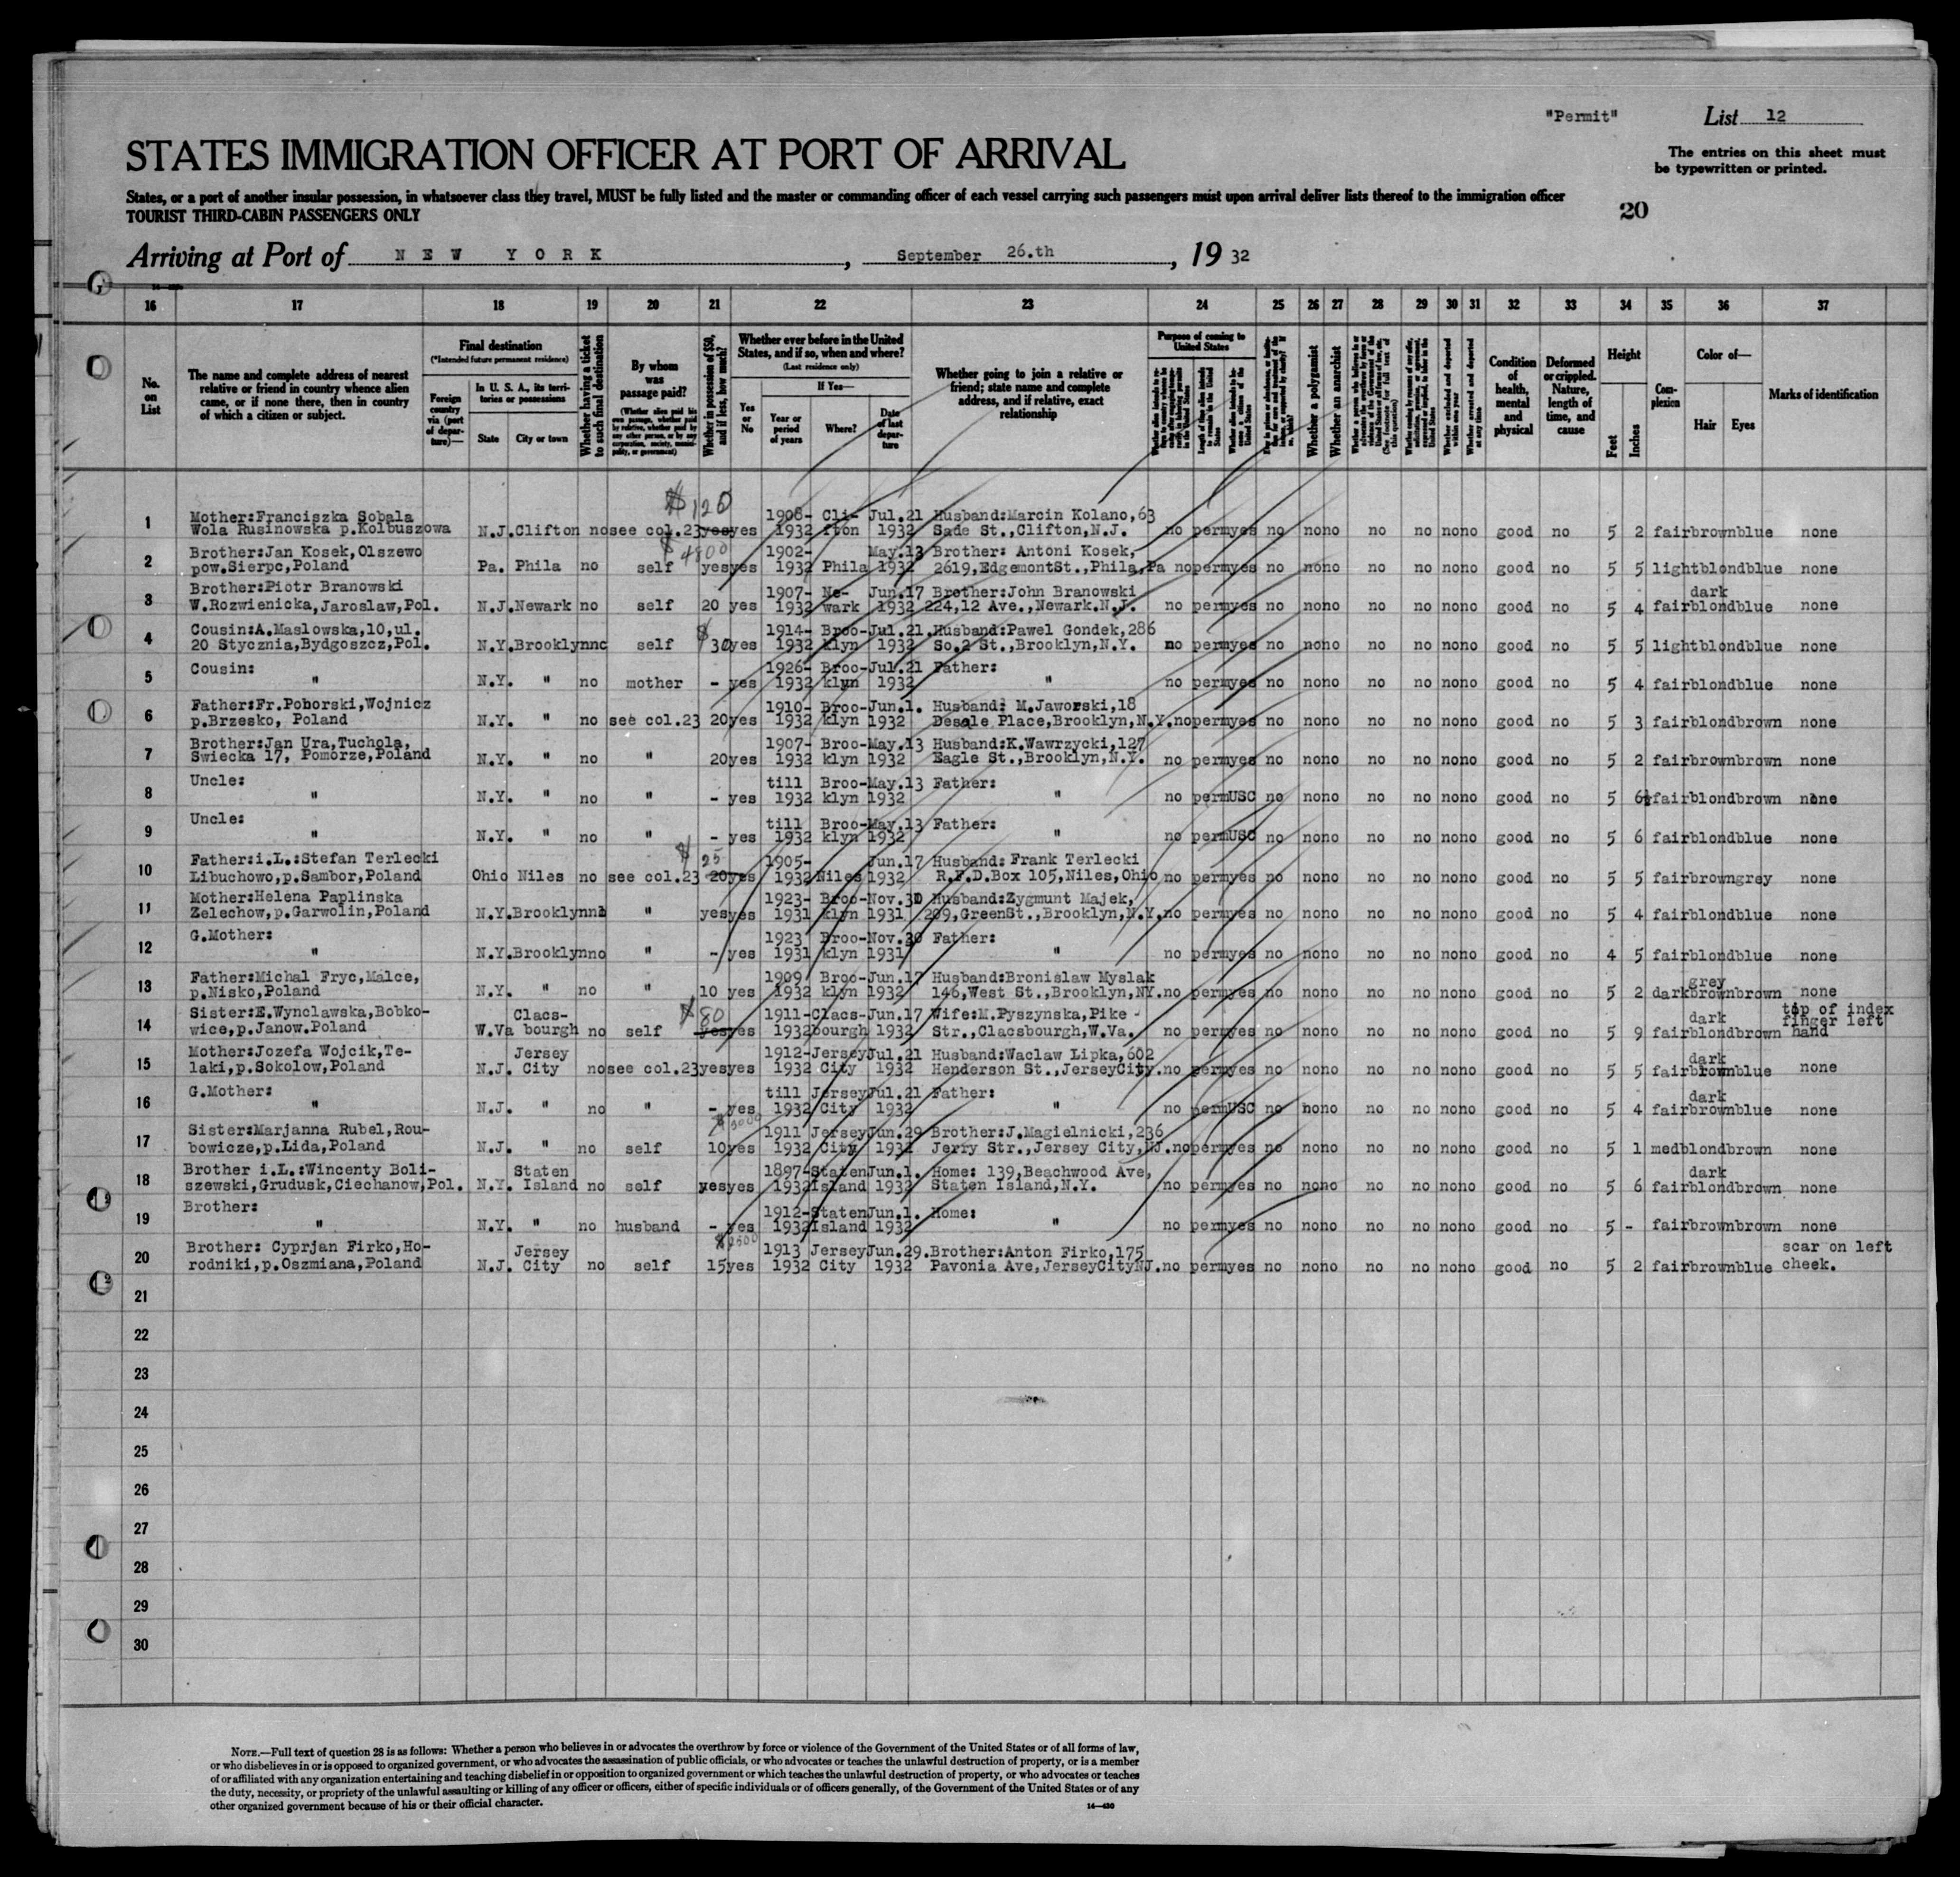 "Permit"
List 12
STATES IMMIGRATION OFFICER AT PORT OF ARRIVAL
The entries on this sheet must
be typewritten or printed.
States, or a port of another insular possession, in whatsoever class they travel, MUST be fully listed and the master or commanding officer of each vessel carrying such passengers must upon arrival deliver lists thereof to the immigration officer
TOURIST THIRD-CABIN PASSENGERS ONLY
20
Arriving at Port of NEW YORK, September 26.th, 1932
16 17 18 19 20 21 22 23 24 25 26 27 28 29 30 31 32 33 34 35 36 37
No. on List
The name and complete address of nearest relative or friend in country whence alien came, or if none there, then in country of which a citizen or subject.
Final destination
(*Intended future permanent residence)
Foreign country via (port of departure)—
In U. S. A., its territories or possessions
State City or town
Whether having a ticket to such final destination
By whom was passage paid?
Whether in possession of $50, and if less, how much?
Whether ever before in the United States, and if so, when and where?
(Last residence only)
Yes or No
If Yes—
Year or period of years
Where?
Date of last departure
Whether going to join a relative or friend; state name and complete address, and if relative, exact relationship
Purpose of coming to United States
Whether a polygamist
Whether an anarchist
Condition of health, mental and physical
Deformed or crippled. Nature, length of time, and cause
Height
Feet Inches
Complexion
Color of—
Hair Eyes
Marks of identification
$120
1 Mother:Franciszka Sobala 1908- Cli- Jul.21 Husband:Marcin Kolano,63
Wola Rusinowska p.Kolbuszowa N.J.Clifton no see col.23 yes yes 1932 fton 1932 Sade St.,Clifton,N.J. no perm yes no no no no no no no good no 5 2 fair brown blue none
$4800
2 Brother:Jan Kosek,Olszewo 1902- May.13 Brother: Antoni Kosek,
pow.Sierpc,Poland Pa. Phila no self yes yes 1932 Phila 1932 2619,EdgemontSt.,Phila,Pa no perm yes no no no no no no no good no 5 5 light blond blue none
3 Brother:Piotr Branowski 1907- Ne- Jun.17 Brother:John Branowski dark
W.Rozwienicka,Jaroslaw,Pol. N.J.Newark no self 20 yes 1932 wark 1932 224,12 Ave.,Newark.N.J. no perm yes no no no no no no no good no 5 4 fair blond blue none
4 Cousin:A.Maslowska,10,ul. $ 1914- Broo- Jul.21. Husband:Pawel Gondek,286
20 Stycznia,Bydgoszcz,Pol. N.Y.Brooklyn no self 30 yes 1932 klyn 1932 So.2 St.,Brooklyn,N.Y. no perm yes no no no no no no no good no 5 5 light blond blue none
5 Cousin: 1926- Broo- Jul.21 Father:
" N.Y. " no mother - yes 1932 klyn 1932 " no perm yes no no no no no no no good no 5 4 fair blond blue none
6 Father:Fr.Pohorski,Wojnicz 1910- Broo- Jun.1. Husband: M.Jaworski,18
p.Brzesko, Poland N.Y. " no see col.23 20 yes 1932 klyn 1932 Desale Place,Brooklyn,N.Y. no perm yes no no no no no no no good no 5 3 fair blond brown none
7 Brother:Jan Ura,Tuchola, 1907- Broo- May.13 Husband:K.Wawrzycki,127
Swiecka 17, Pomorze,Poland N.Y. " no " 20 yes 1932 klyn 1932 Eagle St.,Brooklyn,N.Y. no perm yes no no no no no no no good no 5 2 fair brown brown none
8 Uncle: till Broo- May.13 Father:
" N.Y. " no " - yes 1932 klyn 1932 " no perm USC no no no no no no no good no 5 6½ fair blond brown none
9 Uncle: till Broo- May.13 Father:
" N.Y. " no " - yes 1932 klyn 1932 " no perm USC no no no no no no no good no 5 6 fair blond blue none
10 Father:i.L.:Stefan Terlecki $25 1905- Jun.17 Husband: Frank Terlecki
Libuchowo,p.Sambor,Poland Ohio Niles no see col.23 20 yes 1932 Niles 1932 R.F.D.Box 105,Niles,Ohio no perm yes no no no no no no no good no 5 5 fair brown grey none
11 Mother:Helena Paplinska 1923- Broo- Nov.30 Husband:Zygmunt Majek,
Zelechow,p.Garwolin,Poland N.Y.Brooklyn no " yes yes 1931 klyn 1931 209,GreenSt.,Brooklyn,N.Y. no perm yes no no no no no no no good no 5 4 fair blond blue none
12 G.Mother: 1923 Broo- Nov.30 Father:
" N.Y.Brooklyn no " - yes 1931 klyn 1931 " no perm yes no no no no no no no good no 4 5 fair blond blue none
13 Father:Michal Fryc,Malce, 1909 Broo- Jun.17 Husband:Bronislaw Myslak grey
p.Nisko,Poland N.Y. " no " 10 yes 1932 klyn 1932 146,West St.,Brooklyn,NY. no perm yes no no no no no no no good no 5 2 dark brown brown none
14 Sister:E.Wynclawska,Bobko- Clacs- $80 1911- Clacs- Jun.17 Wife:M.Pyszynska,Pike - dark tip of index finger left
wice,p.Janow.Poland W.Va bourgh no self yes yes 1932 bourgh 1932 Str.,Clacsbourgh,W.Va. no perm yes no no no no no no no good no 5 9 fair blond brown hand
15 Mother:Jozefa Wojcik,Te- Jersey 1912- Jersey Jul.21 Husband:Waclaw Lipka,602 dark
laki,p.Sokolow,Poland N.J. City no see col.23 yes yes 1932 City 1932 Henderson St.,JerseyCity. no perm yes no no no no no no no good no 5 5 fair brown blue none
16 G.Mother: till Jersey Jul.21 Father: dark
" N.J. " no " - yes 1932 City 1932 " no perm USC no no no no no no no good no 5 4 fair brown blue none
$3000
17 Sister:Marjanna Rubel,Rou- 1911 Jersey Jun.29 Brother:J.Magielnicki,236
bowicze,p.Lida,Poland N.J. " no self 10 yes 1932 City 1932 Jerry Str.,Jersey City,NJ. no perm yes no no no no no no no good no 5 1 med blond brown none
18 Brother i.L.:Wincenty Boli- Staten 1897- Staten Jun.1. Home: 139,Beachwood Ave, dark
szewski,Grudusk,Ciechanow,Pol. N.Y. Island no self yes yes 1932 Island 1932 Staten Island,N.Y. no perm yes no no no no no no no good no 5 6 fair blond brown none
19 Brother: 1912- Staten Jun.1. Home:
" N.Y. " no husband - yes 1932 Island 1932 " no perm yes no no no no no no no good no 5 - fair brown brown none
20 Brother: Cyprjan Firko,Ho- Jersey 1913 Jersey Jun.29. Brother:Anton Firko,175 scar on left
rodniki,p.Oszmiana,Poland N.J. City no self 15 yes 1932 City 1932 Pavonia Ave,JerseyCityNJ. no perm yes no no no no no no no good no 5 2 fair brown blue cheek.
21
22
23
24
25
26
27
28
29
30
NOTE.—Full text of question 28 is as follows: Whether a person who believes in or advocates the overthrow by force or violence of the Government of the United States or of all forms of law,
or who disbelieves in or is opposed to organized government, or who advocates the assassination of public officials, or who advocates or teaches the unlawful destruction of property, or is a member
of or affiliated with any organization entertaining and teaching disbelief in or opposition to organized government or which teaches the unlawful destruction of property, or who advocates or teaches
the duty, necessity, or propriety of the unlawful assaulting or killing of any officer or officers, either of specific individuals or of officers generally, of the Government of the United States or of any
other organized government because of his or their official character.
14—430